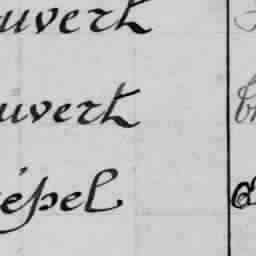 uvert
uvert
épel